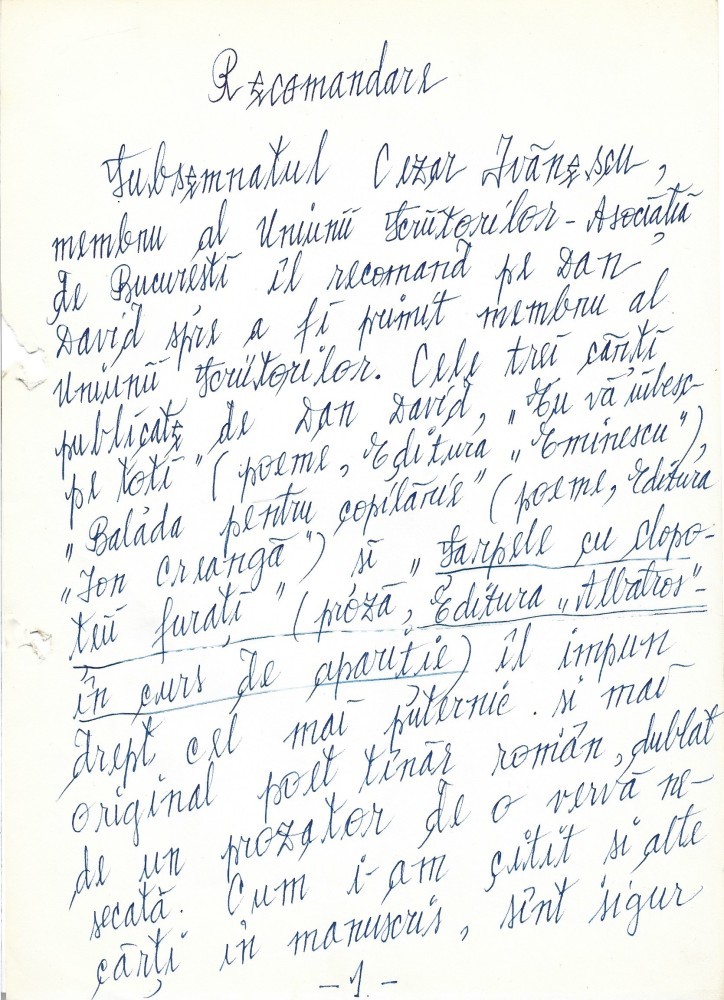 Recomandare
Subsemnatul Cezar Ivănescu,
membru al Uniunii Scriitorilor - Asociația
de București îl recomand pe Dan
David spre a fi primit membru al
Uniunii Scriitorilor. Cele trei cărți
publicate de Dan David, „Eu vă iubesc
pe toți" (poeme, Editura „Eminescu"),
„Balada pentru copilărie" (poeme, Editura
„Ion Creangă") și „Șarpele cu clopo-
ței furați" (proză, Editura „Albatros"-
în curs de apariție) îl impun
drept cel mai puternic și mai
original poet tînăr român, dublat
de un prozator de o vervă ne-
secată. Cum i-am citit și alte
cărți în manuscris, sînt sigur
- 1. -